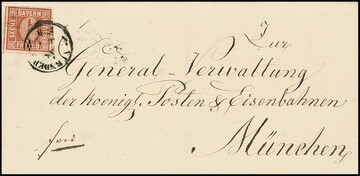 BAYERN
SECHS
FRANCO
Zur
General-Verwaltung
der Koenigl. Posten & Eisenbahnen
München
frei